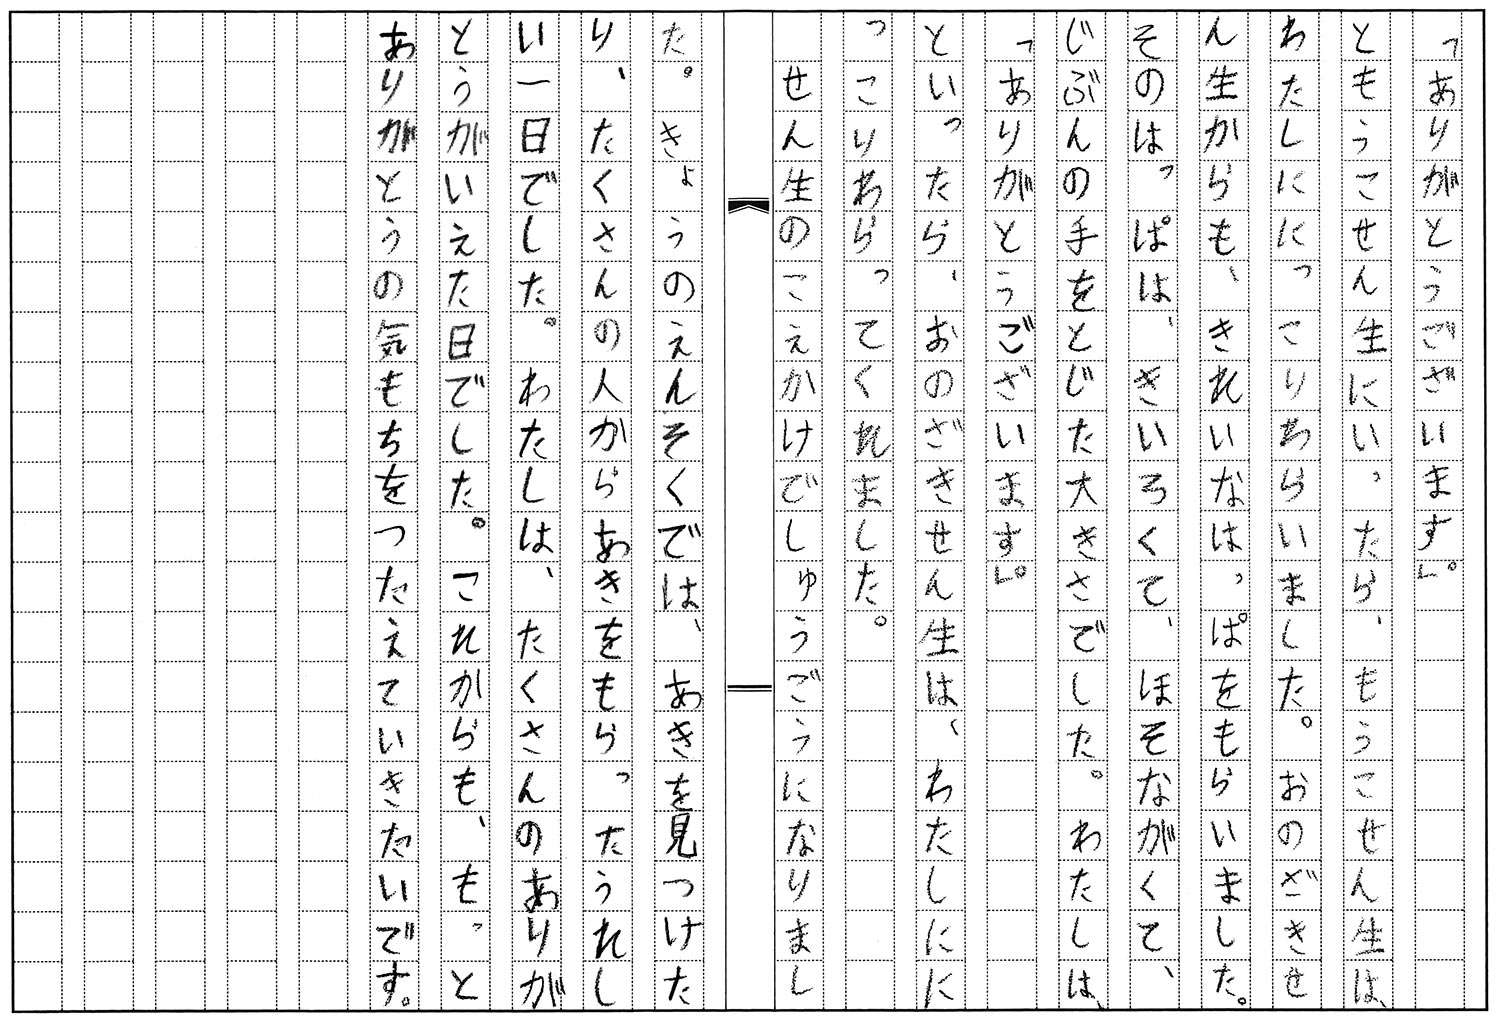 「ありがとうございます」。
ともうこせん生にいったら、もうこせん生は、
わたしににっこりわらいました。おのざきせ
ん生からも、きれいなはっぱをもらいました。
そのはっぱは、きいろくて、ほそながくて、
じぶんの手をとじた大きさでした。わたしは、
「ありがとうございます」。
といったら、おのざきせん生は、わたしにに
っこりわらってくれました。
せん生のこえかけでしゅうごうになりまし
た。きょうのえんそくでは、あきを見つけた
り、たくさんの人からあきをもらったうれし
い一日でした。わたしは、たくさんのありが
とうがいえた日でした。これからも、もっと
ありがとうの気もちをつたえていきたいです。